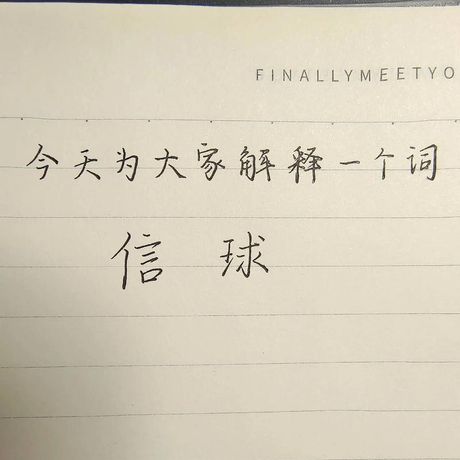 FINALLYMEETYO
今天为大家解释一个词
信球